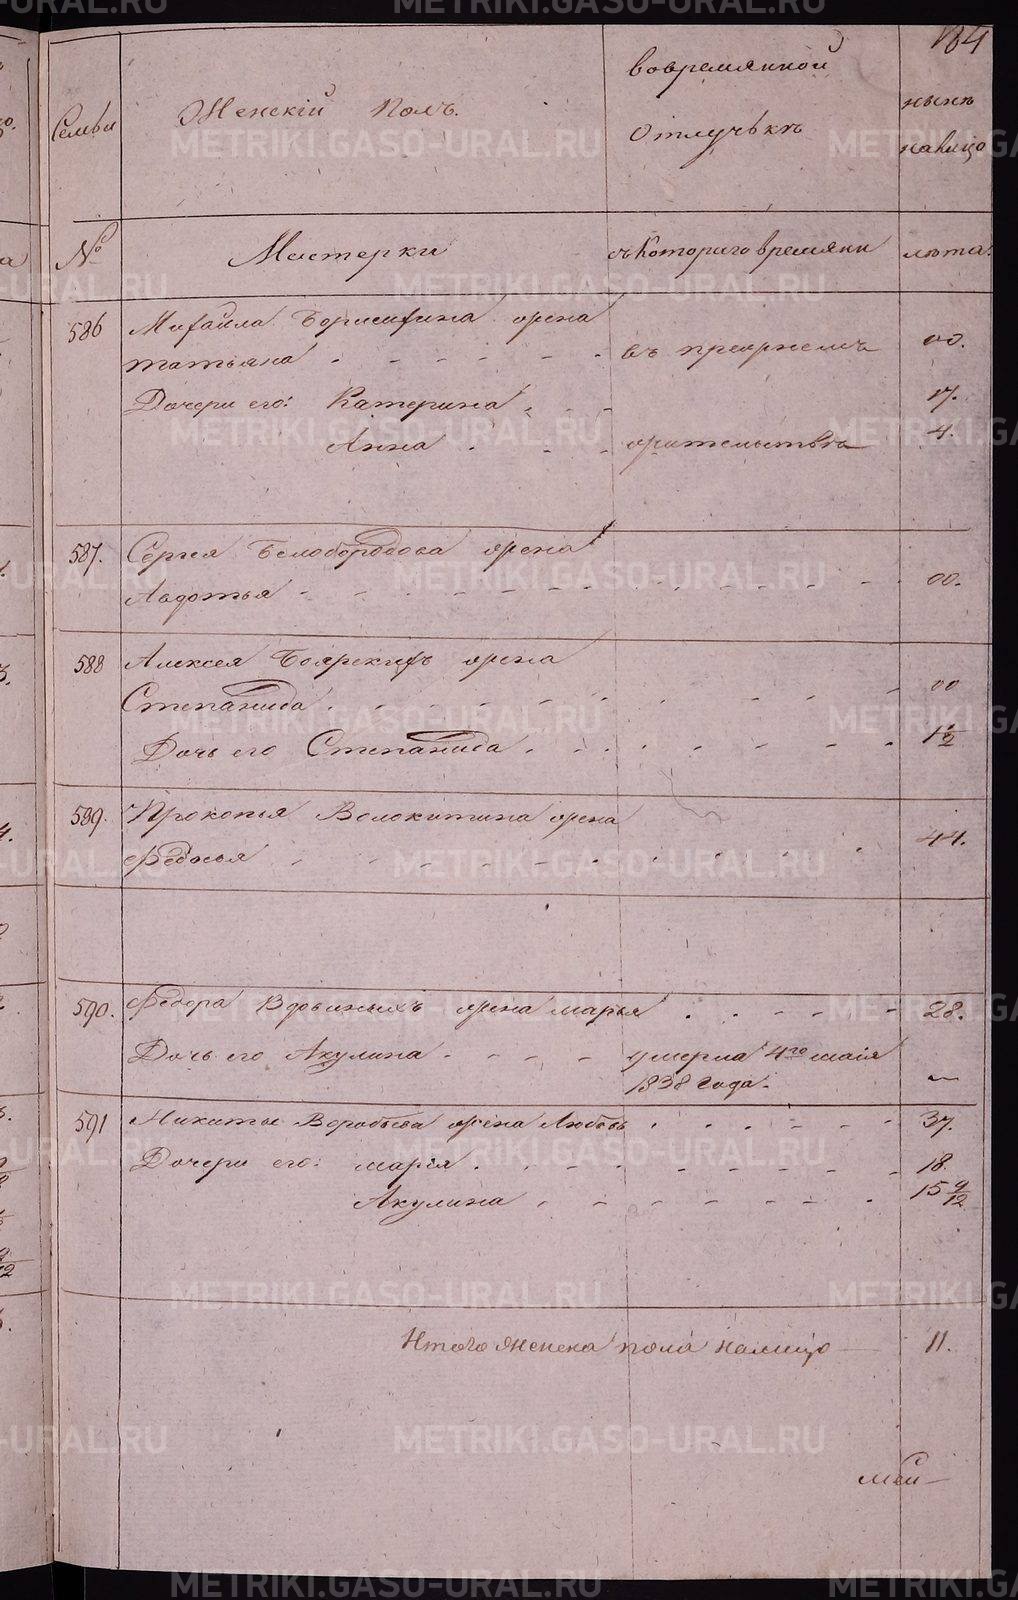 184
Семьи
Женскій Полъ.
вовремянной
Отлучькѣ
нынѣ
налицо
№
Мастерки
съ Которого времяни
лѣта.
586
Михаила Борисихина жена
татьяна
въ прежнемъ
00.
Дочери его: Катерина
17.
Анна
жительствѣ
4.
587.
Сергея Белобородова жена
Авдотья
00.
588
Алексея Боярскихъ жена
Степанида
00
Дочь его Степанида
1 1/2
589.
Прокопья Волокитина жена
Федосья
44.
590.
Федора Вдовиныхъ жена марья
28.
Дочь его Акулина
умерла 4го маія
1838 года.
—
591
Никиты Воробьева жена Любовь
37.
Дочери его: марія
18.
Акулина
15 9/12
Итого женска пола налицо
11.
METRIKI.GASO-URAL.RU